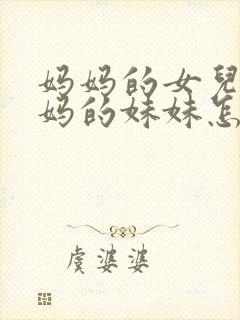 妈妈的女兒
妈的妹妹怎
虞婆婆